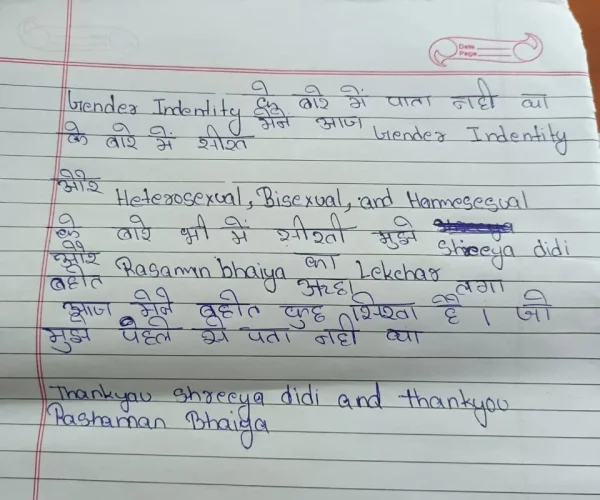 Date
Page
Gender Indentity के बारे में पाता नही था
के बारे में सीखा मैने आज Gender Indentity
और Heterosexual, Bisexual, and Hamnesesual
के बारे भी में सीखी मुझे Shreeya didi
और Rasaman bhaiya का Lekchar
बहोत अच्छा लगा
आज मैने बहोत कुछ सिखा है । जो
मुझे पेहले से पता नही था
Thankyou shreeya didi and thankyou
Rashaman Bhaiya